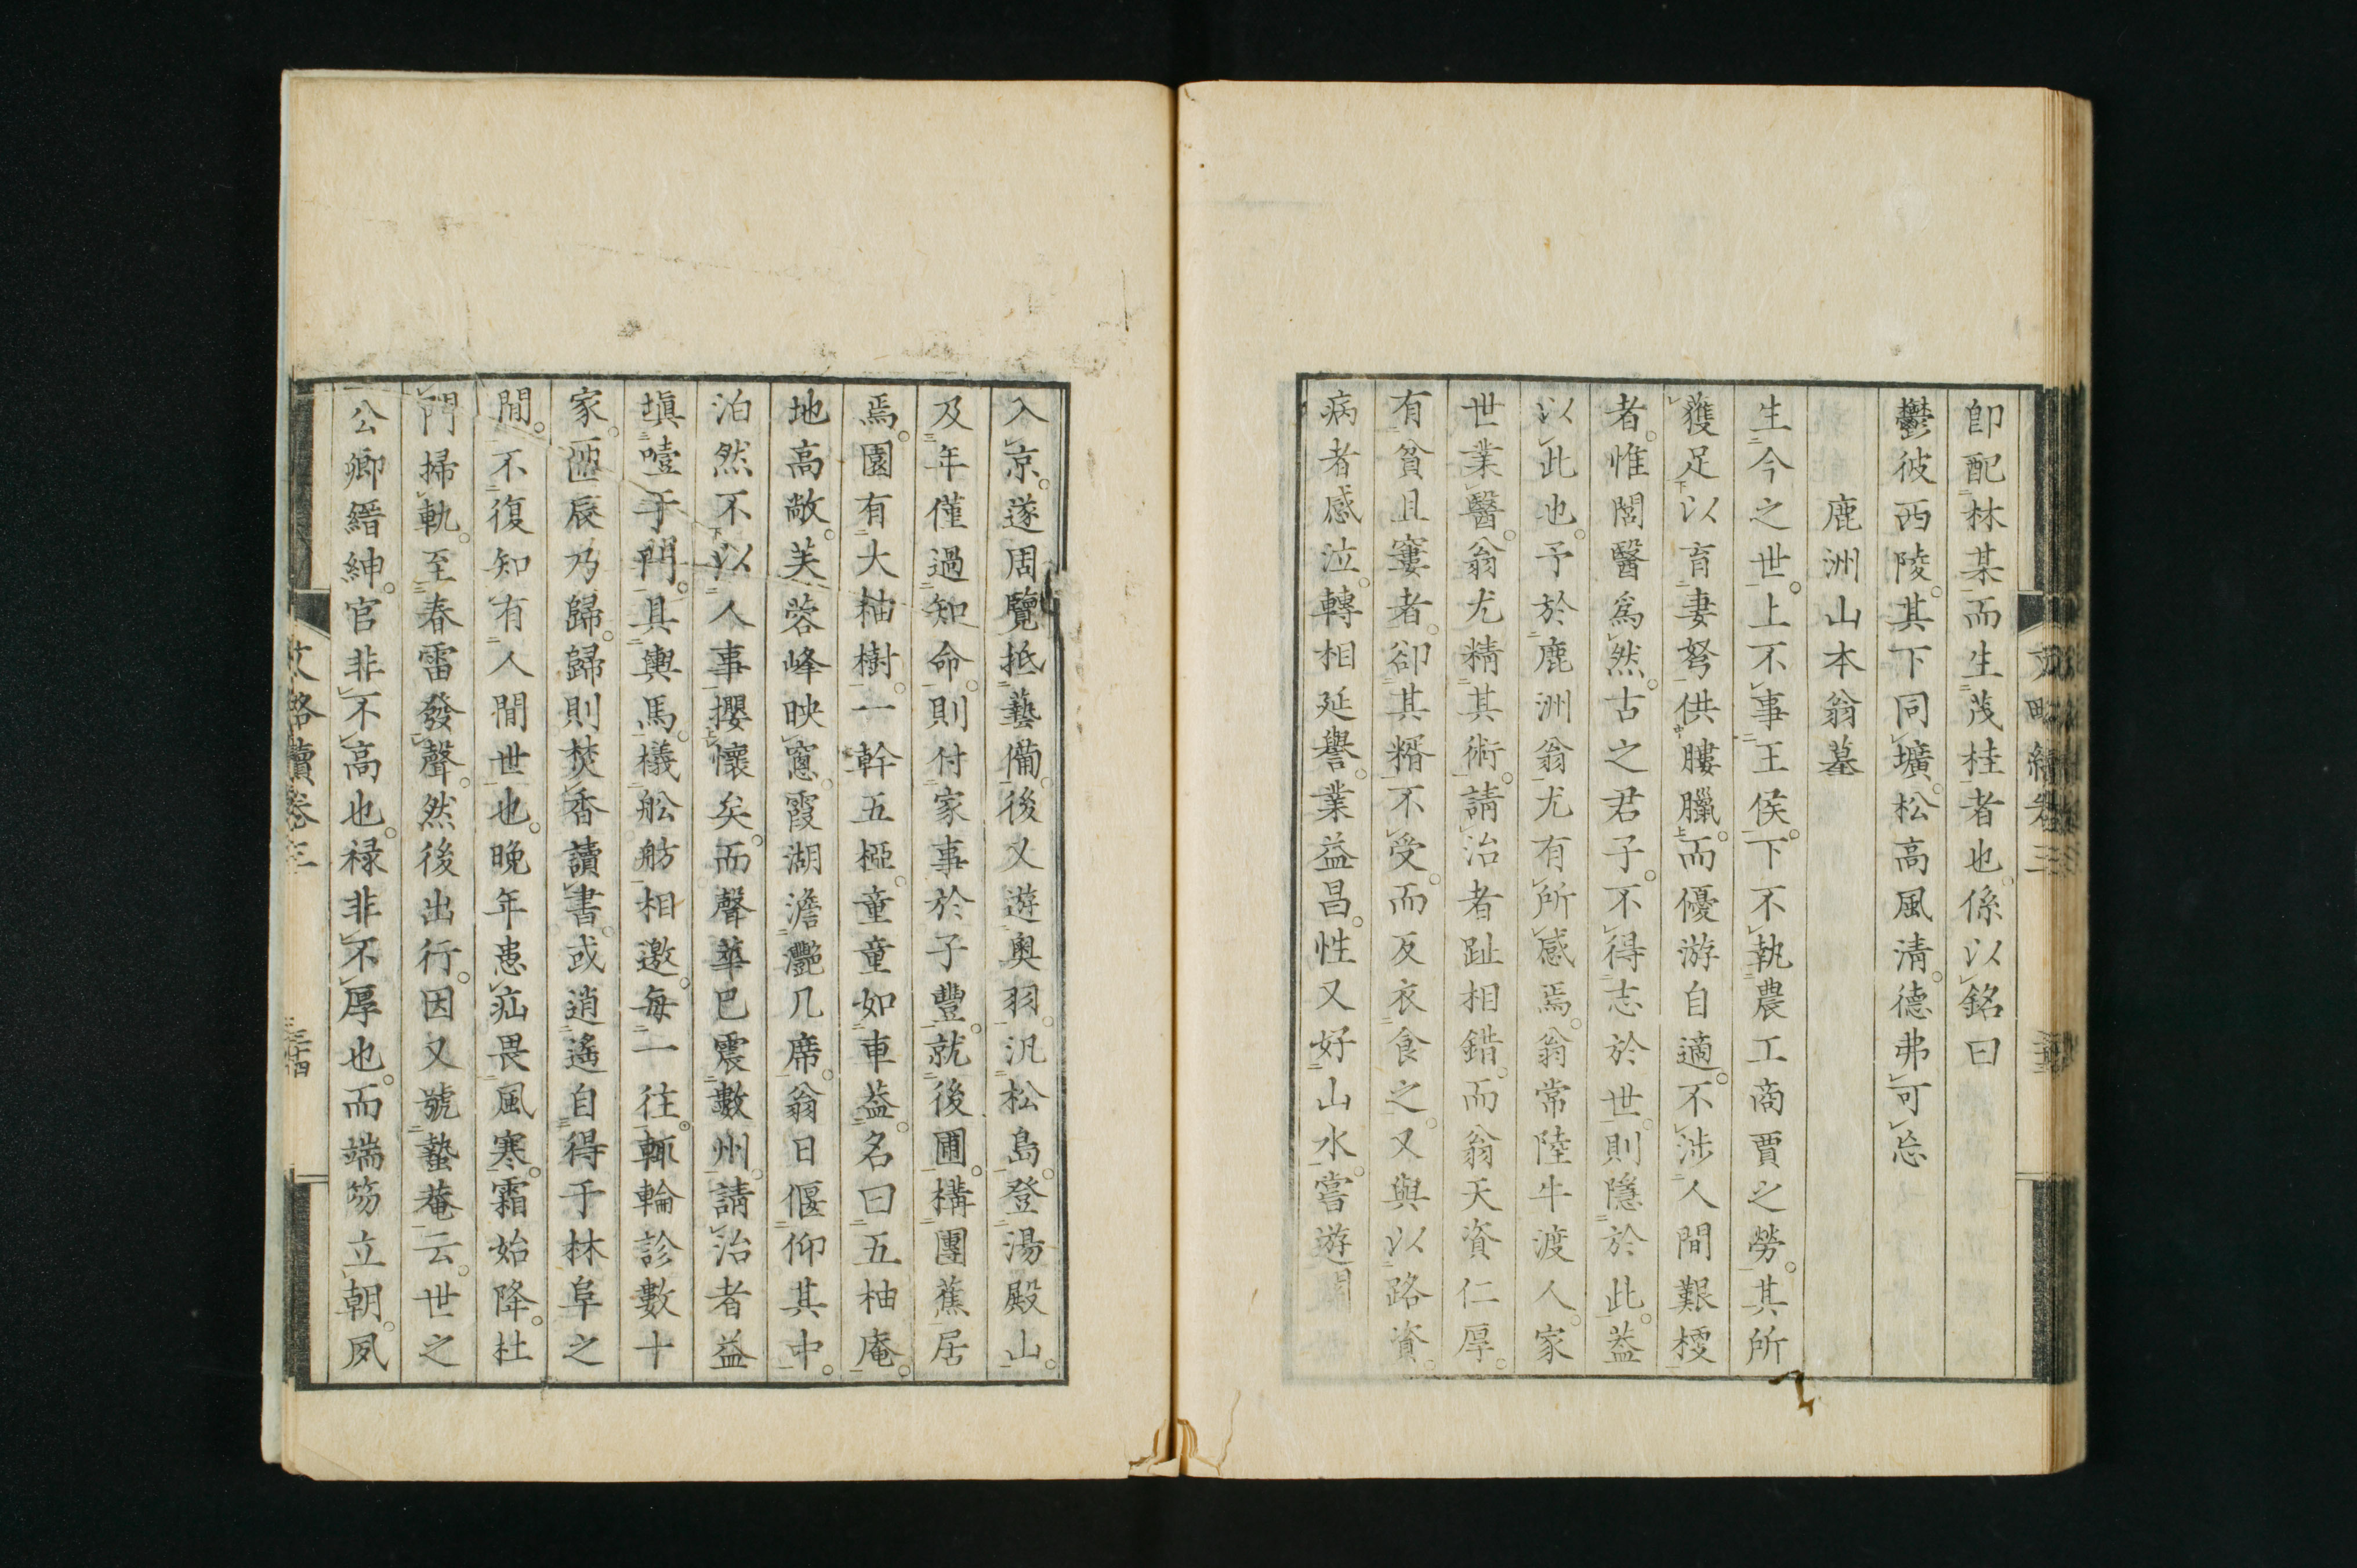 卽配林某而生茂桂者也係以銘曰
鬱彼西陵其下同壙松高風淸德弗可忘
鹿洲山本翁墓
生今之世上不事王侯下不執農工商賈之勞其所
獲足以育妻孥供膢臘而優游自適不涉人間艱樓
者惟閭醫爲然古之君子不得志於世則隱於此葢
以此也予於鹿洲翁尤有所感焉翁常陸牛渡人家
世業醫翁尤精其術請治者趾相錯而翁天資仁厚
有貧且窶者卻其糈不受而反衣食之又與以路資
病者感泣轉相延譽業益昌性又好山水嘗遊
入京遂周覽抵藝備後又遊奧羽汎松島登湯殿山
及年僅過知命則付家事於子豐就後圃構團蕉居
焉園有大柚樹一幹五椏童童如車葢名曰五柚庵
地高敞芙蓉峰映窻霞湖澹灩几席翁日偃仰其中
泊然不以人事攖懷矣而聲華已震數州請治者益
塡噎于門具輿馬檥舩舫相邀每一往輒輪診數十
家匝辰乃歸歸則焚香讀書或逍遙自得于林阜之
間不復知有人間世也晩年患疝畏風寒霜始降杜
門掃軌至春雷發聲然後出行因又號蟄菴云世之
公卿縉紳官非不高也祿非不厚也而端笏立朝夙
文略續卷三
三十四